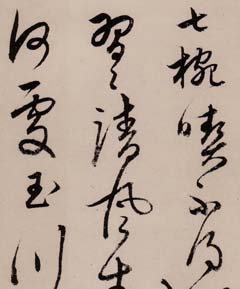 七椀喫不得
習々清風生
何處玉川